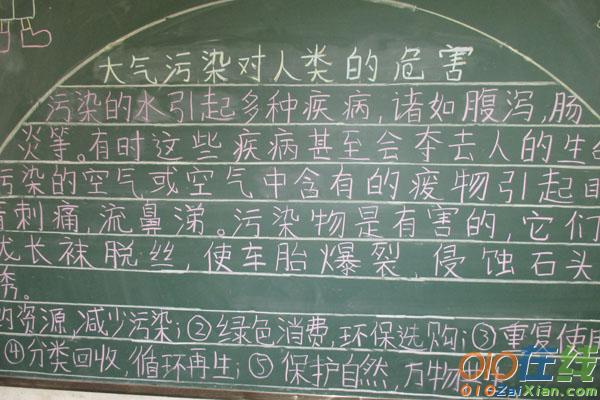 大气污染对人类的危害
污染的水引起多种疾病,诸如腹泻,肠
炎等。有时这些疾病甚至会夺去人的生命
污染的空气或空气中含有的疲物引起
刺痛,流鼻涕。污染物是有害的,它们
成长袜脱丝,使车胎爆裂,侵蚀石头
的资源,减少污染;②绿色消费,环保选购;③重复使用
④分类回收,循环再生;⑤保护自然,万物
010在线
010ZaiXian.com